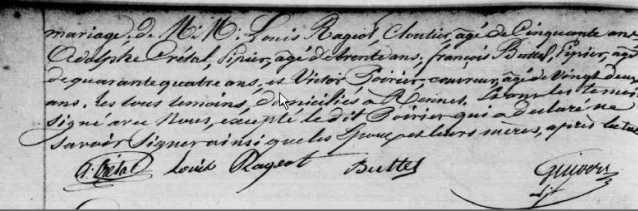 mariage, de M.M. Louis Rageot, Cloutier, âgé de Cinquante ans
Adolphe Crétal, Pipier, âgé de trente ans, françois Buttel, Pipier, âgé
de quarante quatre ans, et Victor Poirier, couvreur, âgé de Vingt deux
ans, les tous temoins, domiciliés à Rennes. Lesquels temoins
signé avec Nous, excepté le dit Poirier qui a declaré ne
savoir Signer ainsi que les Epoux et leurs meres, après lecture
A. Crétal Louis Rageot Buttel